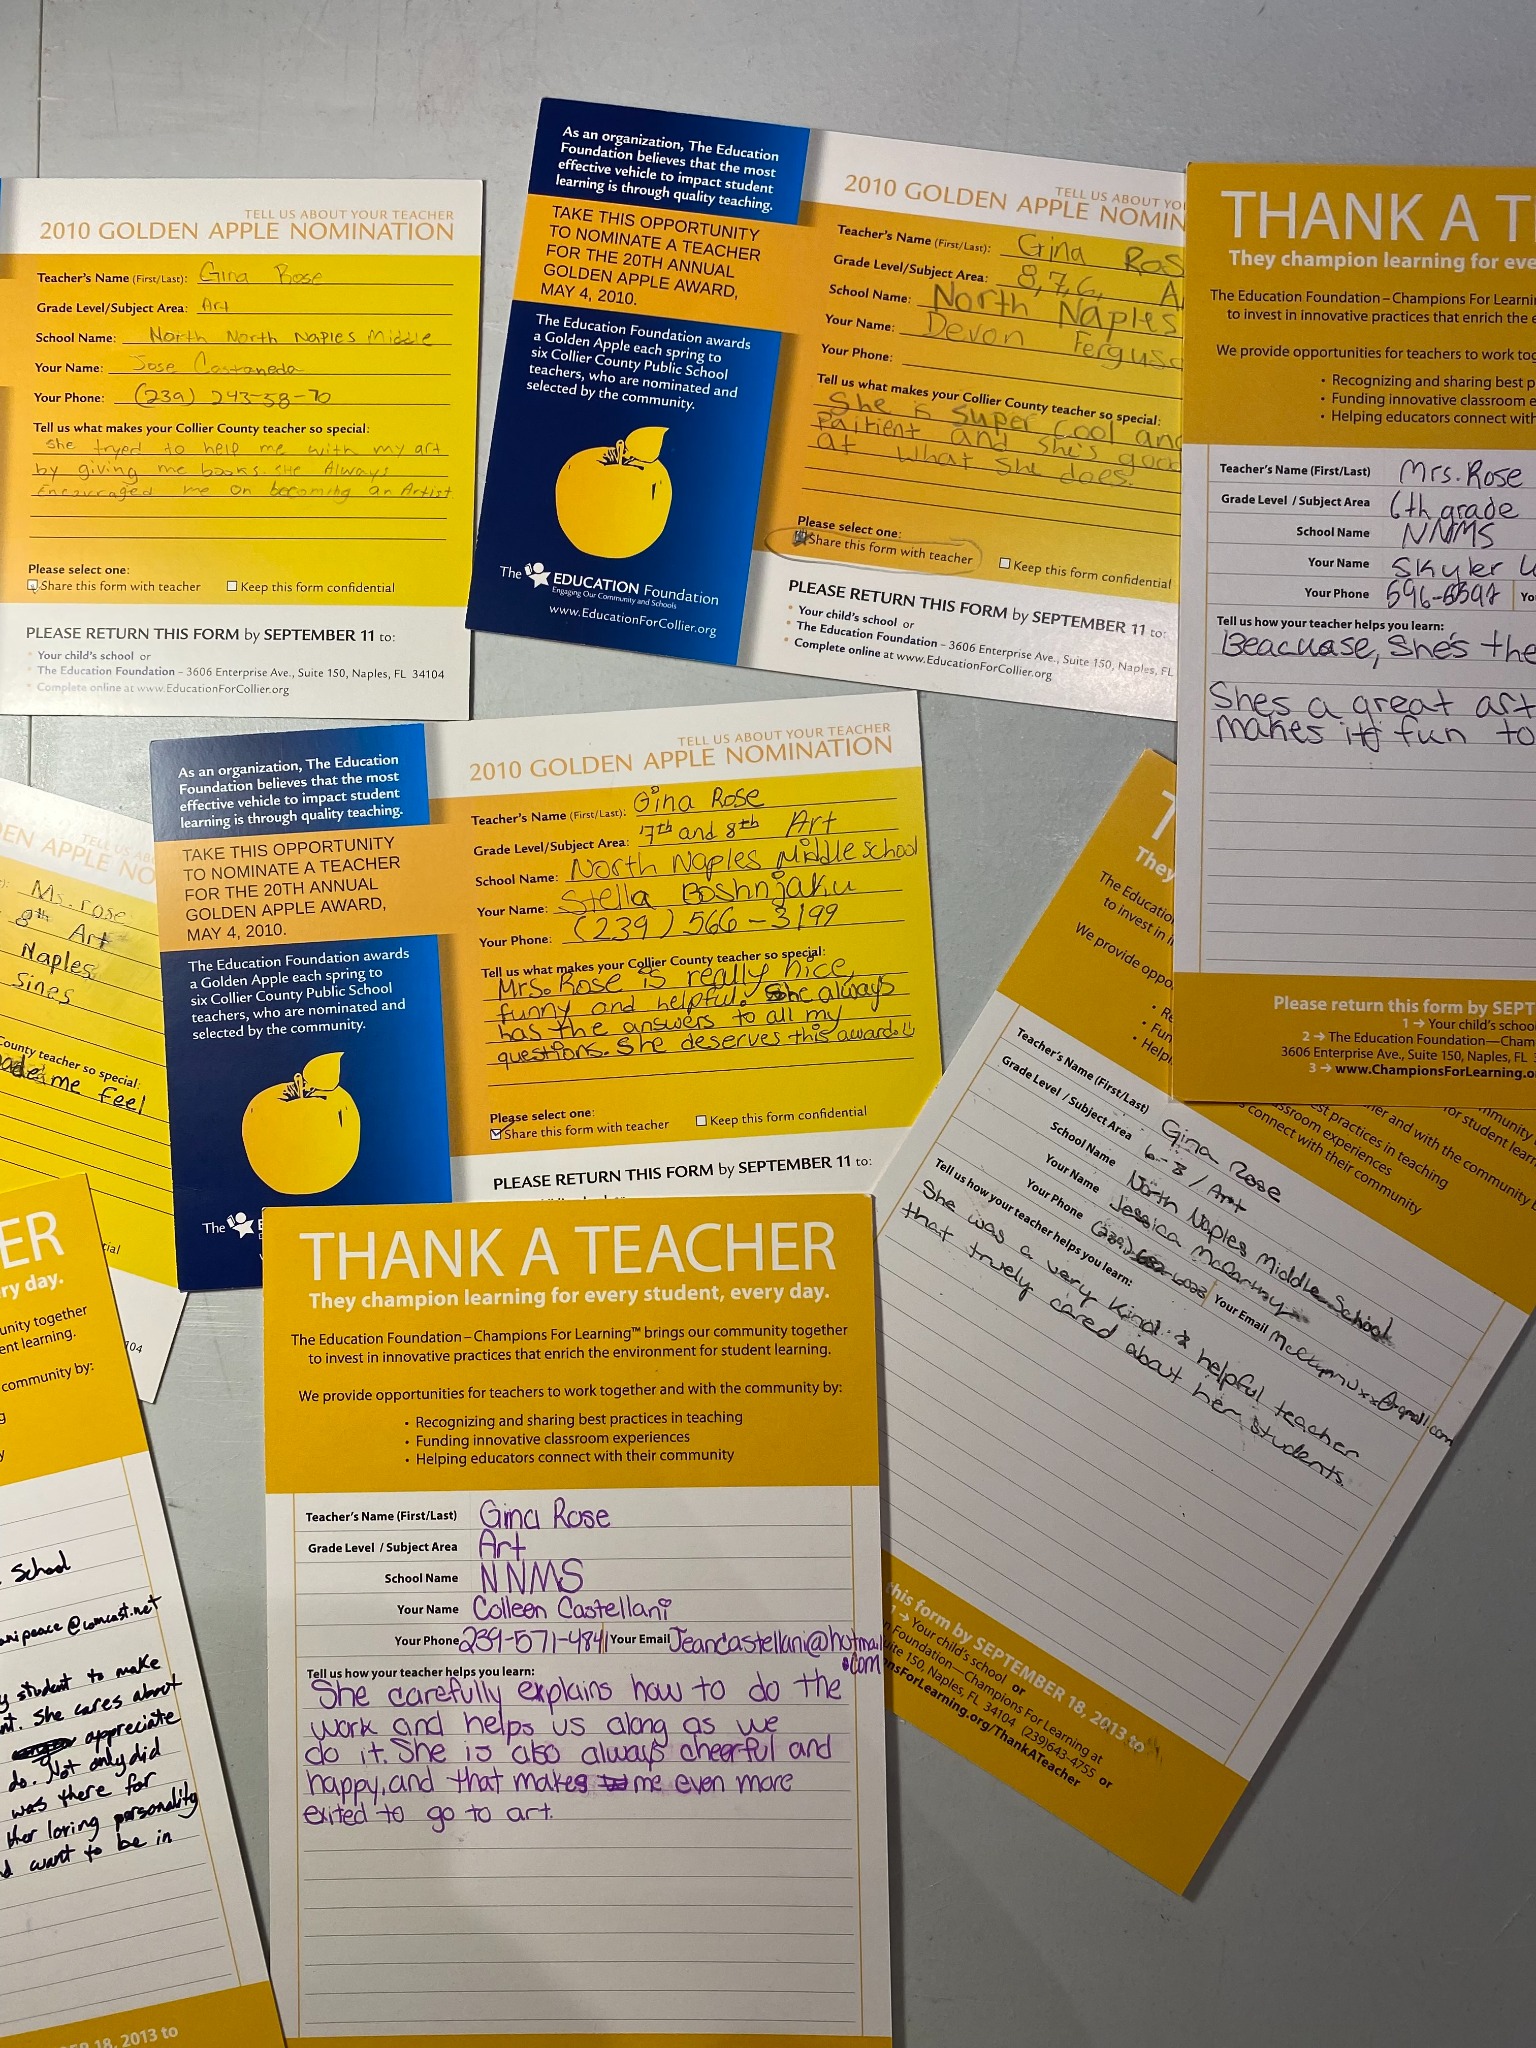 TELL US ABOUT YOUR TEACHER
2010 GOLDEN APPLE NOMINATION
Teacher's Name (First/Last): Gina Rose
Grade Level/Subject Area: Art
School Name: North North Naples Middle
Your Name: Jose Castaneda
Your Phone: (239) 243-58-70
Tell us what makes your Collier County teacher so special:
she tryed to help me with my art
by giving me books. SHe Always
Encouraged me on becoming an Artist.
Please select one:
Share this form with teacher Keep this form confidential
PLEASE RETURN THIS FORM by SEPTEMBER 11 to:
• Your child's school or
• The Education Foundation – 3606 Enterprise Ave., Suite 150, Naples, FL 34104
• Complete online at www.EducationForCollier.org
As an organization, The Education
Foundation believes that the most
effective vehicle to impact student
learning is through quality teaching.
TAKE THIS OPPORTUNITY
TO NOMINATE A TEACHER
FOR THE 20TH ANNUAL
GOLDEN APPLE AWARD,
MAY 4, 2010.
The Education Foundation awards
a Golden Apple each spring to
six Collier County Public School
teachers, who are nominated and
selected by the community.
The EDUCATION Foundation
Engaging Our Community and Schools
www.EducationForCollier.org
TELL US ABOUT YOU
2010 GOLDEN APPLE NOMIN
Teacher's Name (First/Last): Gina Ros
Grade Level/Subject Area: 8,7,6, A
School Name: North Naples
Your Name: Devon Ferguso
Your Phone:
Tell us what makes your Collier County teacher so special:
She is super cool and
Paitient and she's good
at what she does.
Please select one:
Share this form with teacher Keep this form confidential
PLEASE RETURN THIS FORM by SEPTEMBER 11 to:
• Your child's school or
• The Education Foundation – 3606 Enterprise Ave., Suite 150, Naples, FL
• Complete online at www.EducationForCollier.org
THANK A T
They champion learning for eve
The Education Foundation – Champions For Learnin
to invest in innovative practices that enrich the e
We provide opportunities for teachers to work tog
• Recognizing and sharing best p
• Funding innovative classroom e
• Helping educators connect with
Teacher's Name (First/Last) Mrs. Rose
Grade Level / Subject Area 6th grade
School Name NNMS
Your Name Skyler
Your Phone 596-6397 Yo
Tell us how your teacher helps you learn:
Beacuase, She's the
Shes a great art
makes it fun to
Please return this form by SEPT
1 → Your child's schoo
2 → The Education Foundation—Cham
3606 Enterprise Ave., Suite 150, Naples, FL
3 → www.ChampionsForLearning.o
EN APPLE NO
TELL US AB
Ms. rose
8th Art
Naples
Sines
County teacher so special:
me feel
ial
104
As an organization, The Education
Foundation believes that the most
effective vehicle to impact student
learning is through quality teaching.
TAKE THIS OPPORTUNITY
TO NOMINATE A TEACHER
FOR THE 20TH ANNUAL
GOLDEN APPLE AWARD,
MAY 4, 2010.
The Education Foundation awards
a Golden Apple each spring to
six Collier County Public School
teachers, who are nominated and
selected by the community.
The E
TELL US ABOUT YOUR TEACHER
2010 GOLDEN APPLE NOMINATION
Teacher's Name (First/Last): Gina Rose
Grade Level/Subject Area: 7th and 8th Art
School Name: North Naples Middle school
Your Name: Stella Boshnjaku
Your Phone: (239) 566-3199
Tell us what makes your Collier County teacher so special:
Mrs. Rose is really nice,
funny and helpful. She always
has the answers to all my
questions. She deserves this award
Please select one:
Share this form with teacher Keep this form confidential
PLEASE RETURN THIS FORM by SEPTEMBER 11 to:
T
They
The Education
to invest in i
We provide oppo
• Re
• Fun
• Helpi
mmunity
for student learn
her and with the community
est practices in teaching
ssroom experiences
connect with their community
Teacher's Name (First/Last) Gina Rose
Grade Level / Subject Area 6-8 / Art
School Name North Naples Middle School
Your Name Jessica
Your Phone (239) Your Email
Tell us how your teacher helps you learn:
She was a very kind & helpful teacher
that truely cared about her students.
this form by SEPTEMBER 18, 2013 to
1 → Your child's school or
n Foundation—Champions For Learning at
uite 150, Naples, FL 34104 (239)643-4755 or
nsForLearning.org/ThankATeacher
ER
ry day.
unity together
ent learning.
community by:
g
y
School
anipeace@comcast.net
y student to make
nt. She cares about
appreciate
do. Not only did
was there for
her loving personality
d want to be in
18, 2013 to
THANK A TEACHER
They champion learning for every student, every day.
The Education Foundation – Champions For Learning™ brings our community together
to invest in innovative practices that enrich the environment for student learning.
We provide opportunities for teachers to work together and with the community by:
• Recognizing and sharing best practices in teaching
• Funding innovative classroom experiences
• Helping educators connect with their community
Teacher's Name (First/Last) Gina Rose
Grade Level / Subject Area Art
School Name NNMS
Your Name Colleen Castellani
Your Phone 239-571-4841 Your Email Jeancastellani@hotmail
.com
Tell us how your teacher helps you learn:
She carefully explains how to do the
work and helps us along as we
do it. She is also always cheerful and
happy, and that makes me even more
exited to go to art.